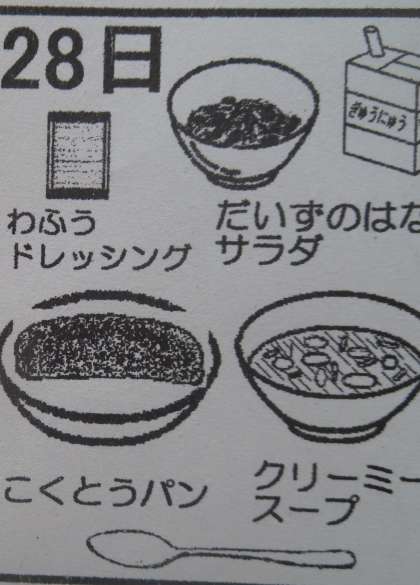 28日
ぎゅうにゅう
わふう
ドレッシング
だいずのはな
サラダ
こくとうパン
クリーミー
スープ